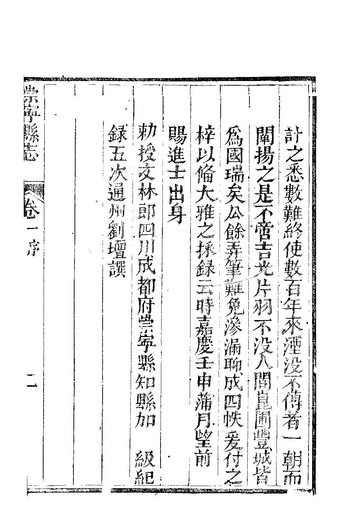 計之悉數難終使數百年來湮没不傳者一朝而
闡揚之是不啻吉光片羽不没人間崑圃豐城皆
爲國瑞矣公餘弄筆難免滲漏聊成四帙爰付之
梓以俻大雅之採録云時嘉慶壬申蒲月望前
賜進士出身
勅授文林郎四川成都府崇寧縣知縣加　級紀
録五次通州劉壇譔
崇寧縣志　卷一序　二